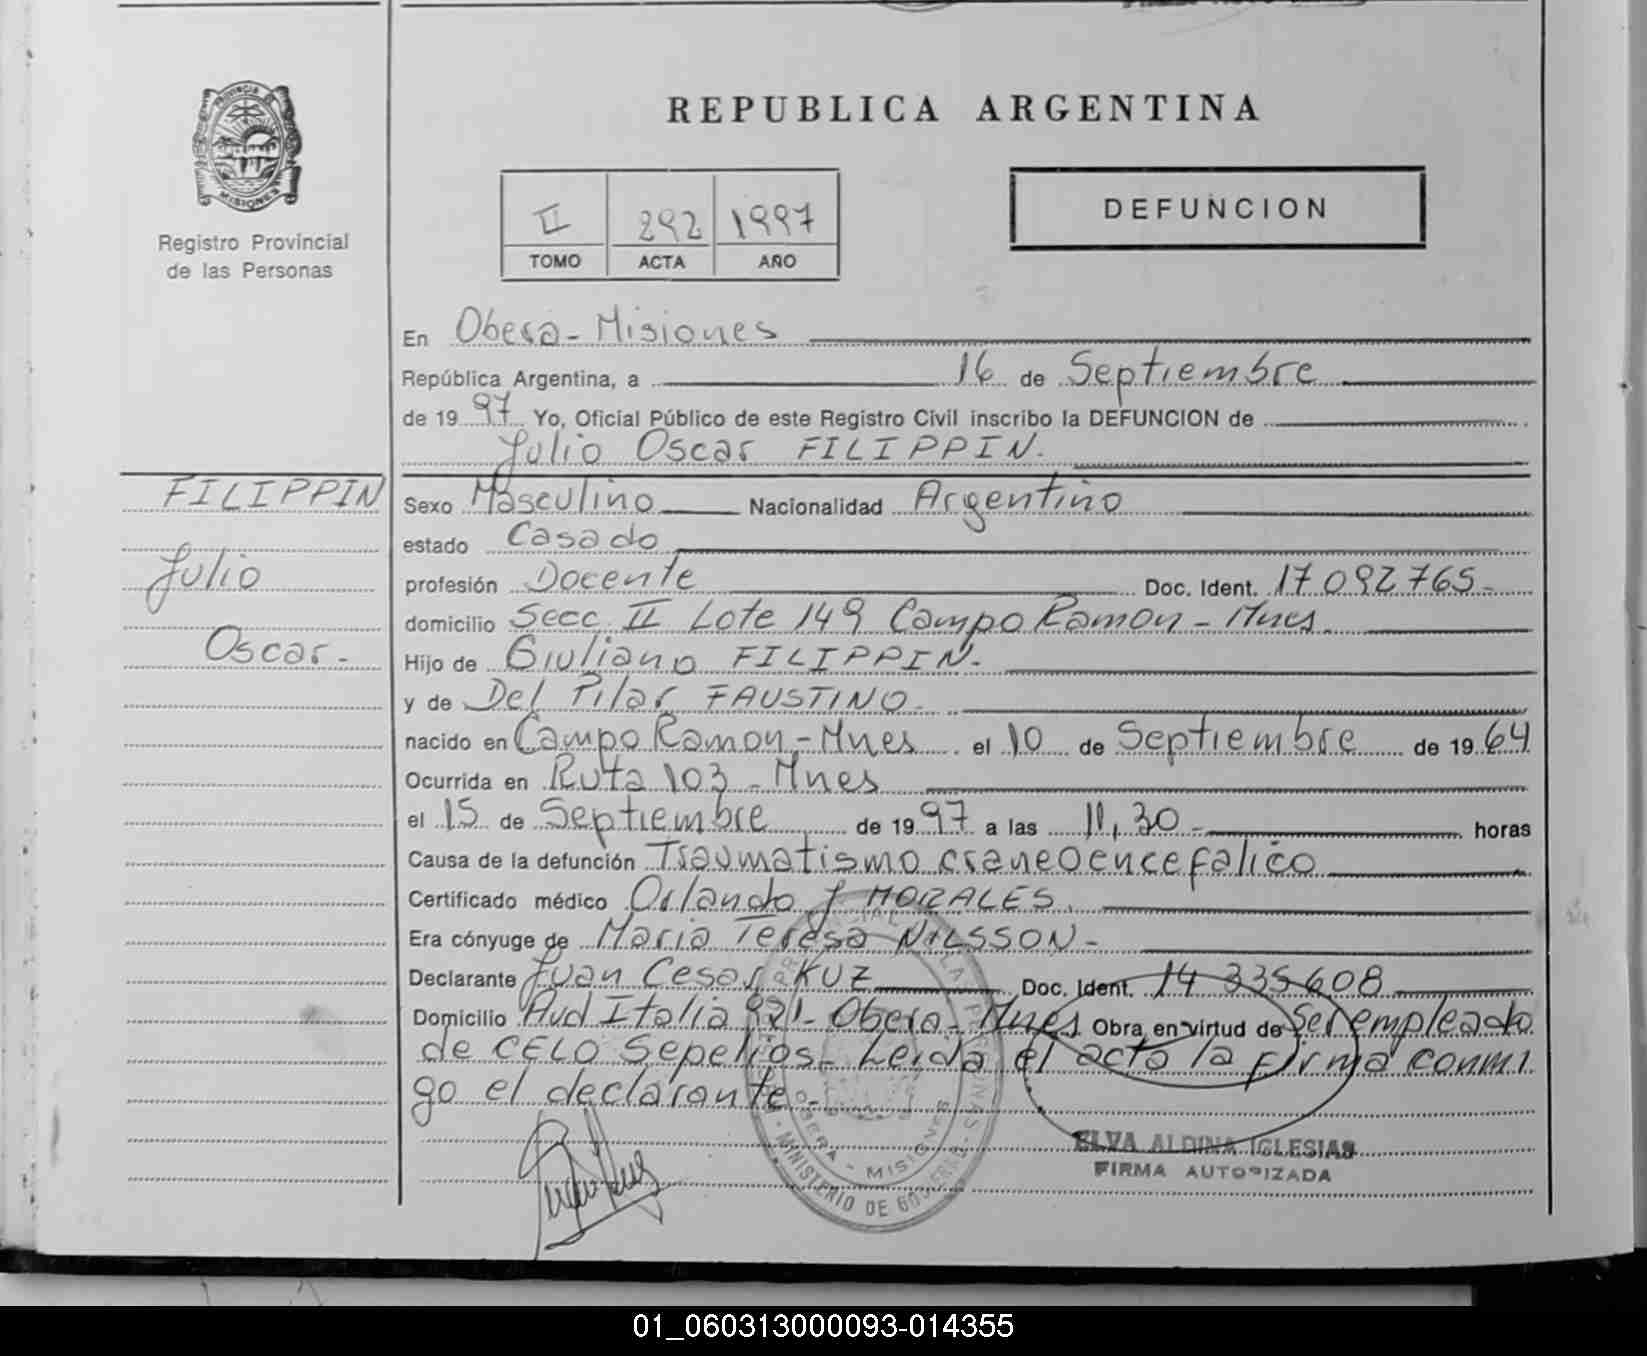 REPUBLICA ARGENTINA
PROVINCIA DE
MISIONES
Registro Provincial
de las Personas
II 292 1997
TOMO ACTA AÑO
DEFUNCION
En Obera - Misiones
República Argentina, a 16 de Septiembre
de 19 97 Yo, Oficial Público de este Registro Civil inscribo la DEFUNCION de
Julio Oscar FILIPPIN.
FILIPPIN
Julio
Oscar.-
Sexo Masculino Nacionalidad Argentino
estado Casado
profesión Docente Doc. Ident. 17 092 765-
domicilio Secc. II Lote 149 Campo Ramon - Mnes.
Hijo de Giuliano FILIPPIN.-
y de Del Pilar FAUSTINO-
nacido en Campo Ramon - Mnes el 10 de Septiembre de 19 64
Ocurrida en Ruta 103 - Mnes
el 15 de Septiembre de 19 97 a las 11,30 - horas
Causa de la defunción Traumatismo craneoencefalico
Certificado médico Orlando J MORALES.
Era cónyuge de Maria Teresa NILSSON-
Declarante Juan Cesar KUZ Doc. Ident. 14 335 608
Domicilio Avd Italia 921- Obera - Mnes Obra en virtud de Ser empleado
de CELO Sepelios- Leida el acta la firma conmi
go el declarante.-
OBERA - MISIONES
MINISTERIO DE GOBIERNO
ELVA ALDINA IGLESIAS
FIRMA AUTORIZADA
01_060313000093-014355